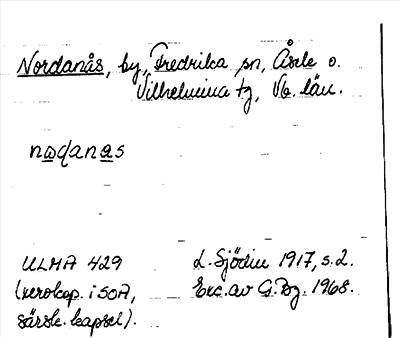 Nordanås, by, Fredrika sn, Åsele o.
Vilhelmina tg, Vb. län.
nɷḍanas
ULMA 429
(xerokop. i SOA,
särsk. kapsel).
L. Sjödin 1917, s. 2.
Exc. av G. Bg. 1968.